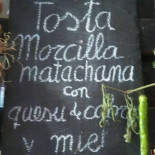 Tosta
Morcilla
matachana
con
quesu de cabra
y miel